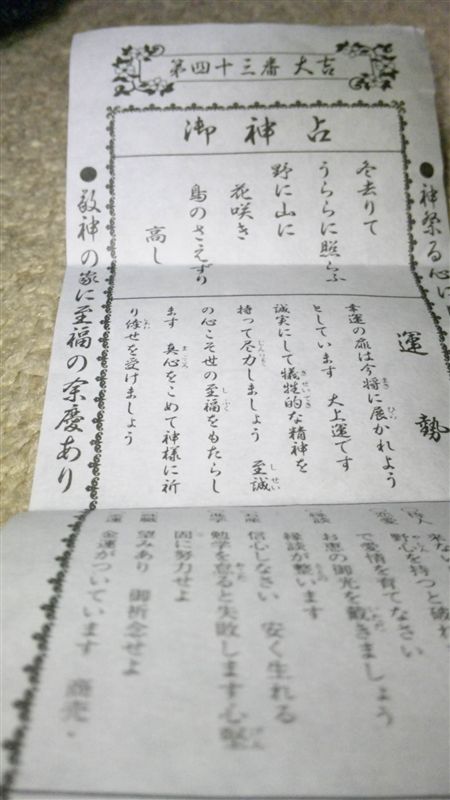 第四十三番 大吉
御神占
●神祭る心に
冬去りて
うららに照らふ
野に山に
花咲き
鳥のさえずり
高し
運勢
幸運の扉は今将に展かれよう
としています 大上運です
誠実にして犠牲的な精神を
持って尽力しましょう 至誠
の心こそ世の至福をもたらし
ます 真心をこめて神様に祈
り倖せを受けましょう
来ない
野心を持つと破れ
で愛情を育てなさい
お恵の御光を戴きましょう
縁談が整います
信心しなさい 安く生れる
勉学を怠ると失敗します 心堅
固に努力せよ
望みあり 御祈念せよ
金運がついています 商売・
●敬神の家に至福の余慶あり